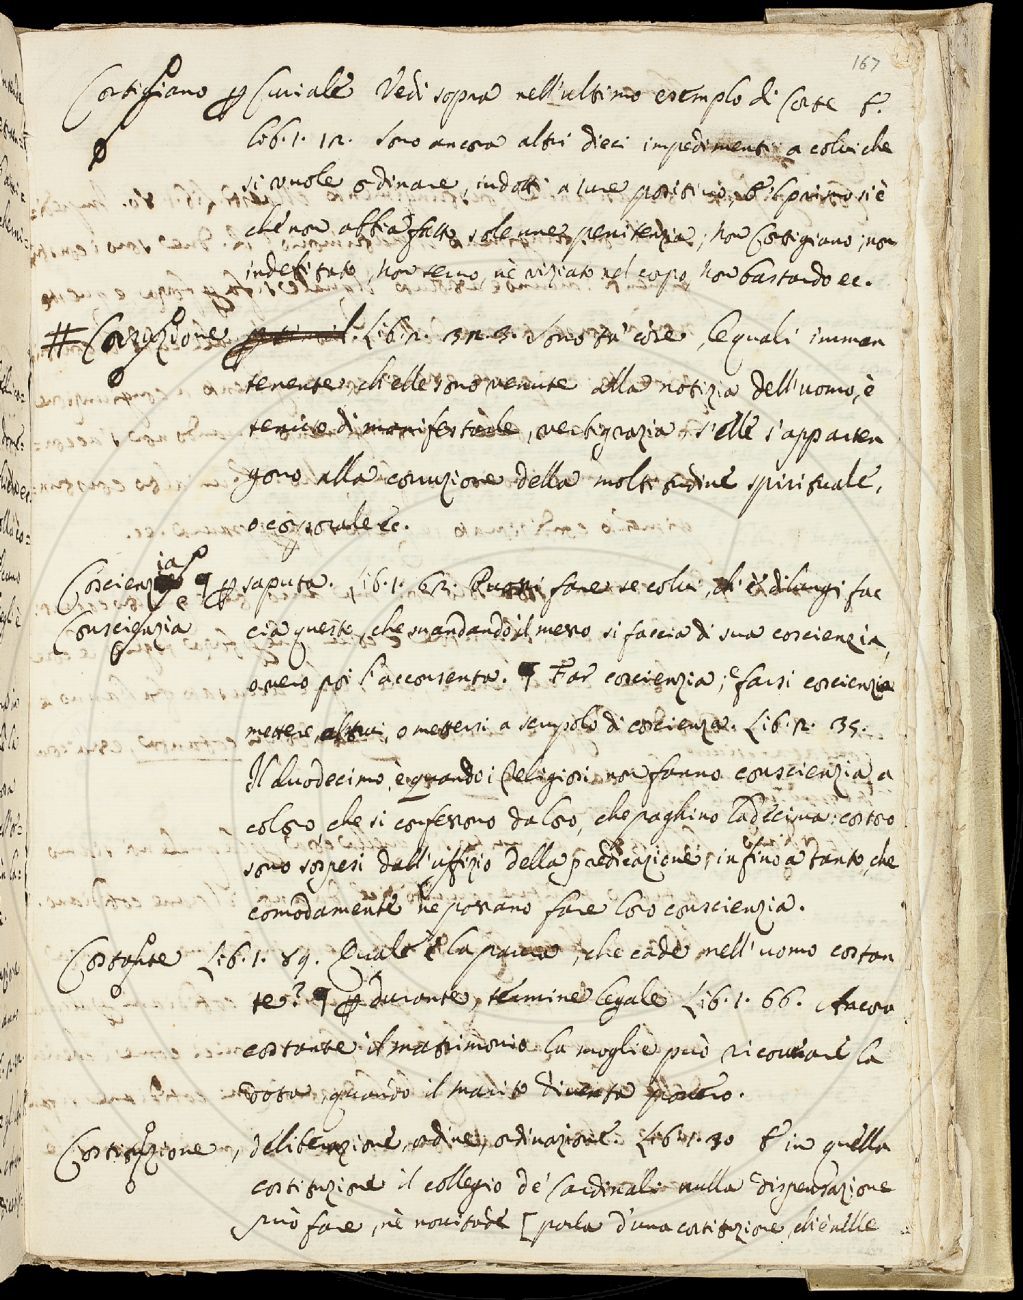 167
Cortigiano ꝑ Curiale Vedi sopra nell'ultimo esemplo di Corte E.
Lib. 1. 12. Sono ancora altri dieci impedimenti a colui che
si vuole ordinare, indotti a iure positivo, E 'l primo si è
che non abbia fatto solenne penitenzia, non Cortigiano, non
indebitato, non servo, nè viziato nel corpo, non bastardo ec.
# Corruzione Lib. 2. 32. 3. Sono fa' cose, le quali imman
tenente ch'elle sono venute alla notizia dell'uomo, è
tenuto di manifestarle, verbigrazia s'elle s'apparten
gono alla corruzione della moltitudine spirituale,
o corporale &c.
Coscienzia ¶ ꝑ saputa. Lib. 1. 62. fare se colui, ch'è di lungi fac
Conscienzia cia queste, che mandando il messo si faccia di sua coscienzia,
overo poi l'acconsenta. ¶ Far coscienzia; e farsi coscienzia
mettere altrui, o mettersi a scrupolo di coscienza. Lib. 2. 35.
Il duodecimo, è quando i Religiosi non fanno conscienzia a
coloro, che si confessono da loro, che paghino la decima: costoro
sono sospesi dall'uffizio della predicazione, infino a tanto, che
comodamente ne possano fare loro conscienzia.
Costante Lib. 1. 89. Quale è la paura, che cade nell'uomo costan
te? ¶ ꝑ durante, termine legale Lib. 1. 66. Ancora
costante il matrimonio la moglie può ricoverare la
dota, quando il marito diventa povero.
Costituzione, deliberazione, ordine, ordinazione. Lib. 1. 30 E in quella
costituzione il collegio de' Cardinali nulla dispensazione
può fare, nè novitade [parla d'una costituzione, ch'è nelle